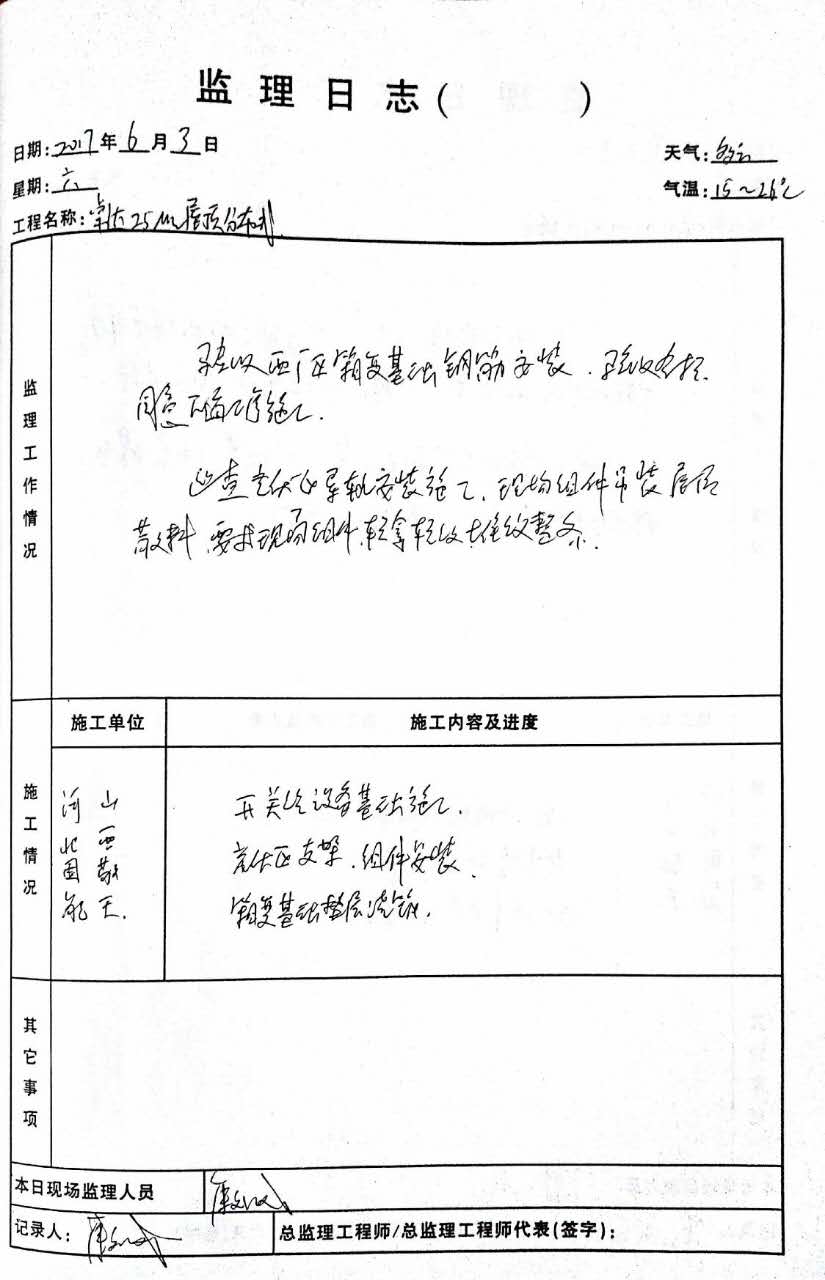 监理日志( )
日期:2017年6月3日
天气:多云
星期:六
气温:15~26℃
工程名称: 25MW屋顶分布式
监理工作情况
验收西厂区箱变基础钢筋安装.验收合格.
同意下道工序施工.
巡查 区导轨安装施工.现场组件吊装屋面
散料.要求现场组件轻拿轻放堆放整齐.
施工单位
施工内容及进度
施工情况
河北国能
山西 天.
开关站设备基础施工.
区支架.组件安装.
箱变基础垫层浇筑.
其它事项
本日现场监理人员
记录人:
总监理工程师/总监理工程师代表(签字):